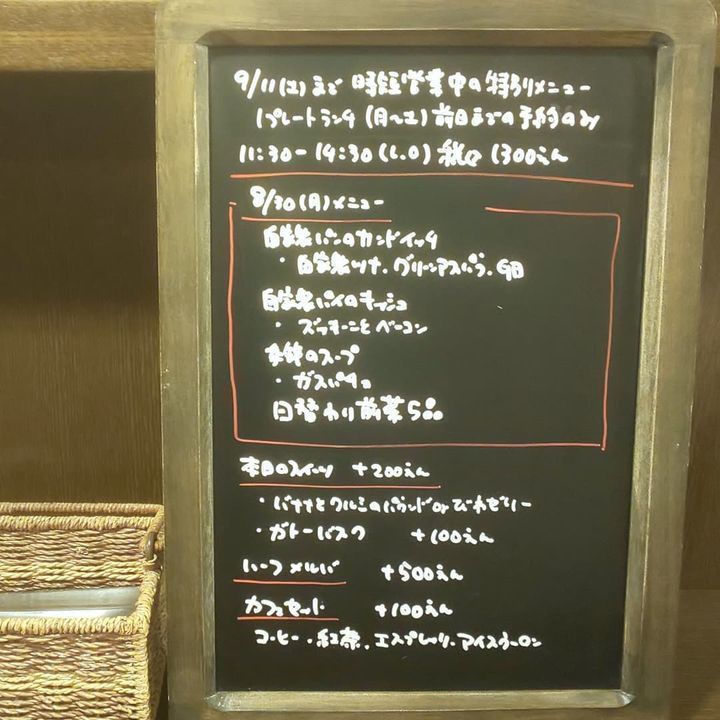 9/11(土)まで 時短営業中の特別メニュー
1プレートランチ(月〜土)前日までの予約のみ
11:30-14:30(L.O) 税込 1300えん
8/30(月)メニュー
自家製パンのサンドイッチ
・自家製ツナ、グリーンアスパラ、卵
自家製パイのキッシュ
・ズッキーニとベーコン
季節のスープ
・ガスパチョ
日替わり前菜5品
本日のスイーツ +200えん
・バナナとクルミのパウンドorびわゼリー
・ガトーバスク +100えん
ハーフメルバ +500えん
カフェセット +100えん
コーヒー、紅茶、エスプレッソ、アイスウーロン